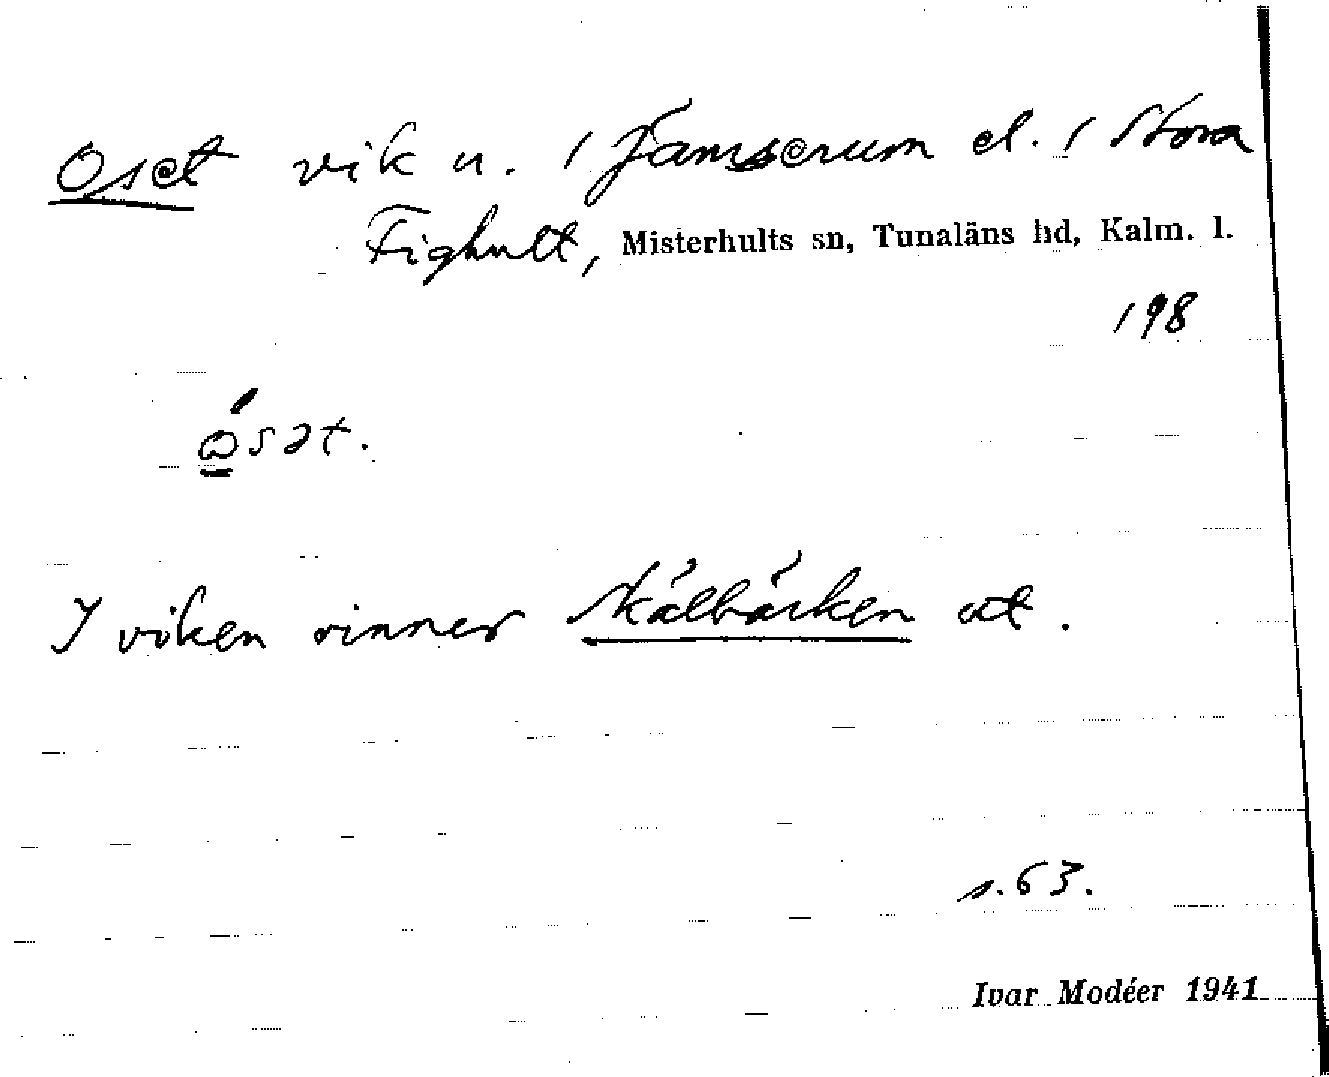 Oset vik u. 1 Jämserum el. 1 Stora
Fighult, Misterhults sn, Tunaläns hd, Kalm. l.
198
ósət.
I viken rinner Skälbäcken ut.
s. 63.
Ivar Modéer 1941